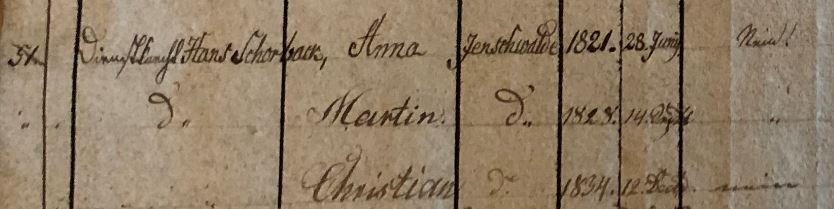 51. Dienstknecht Hans Schorback, Anna Jenschwalde 1821. 28. Juny Nein!
" . d° " Martin. d° " 1828. 14. "
Christian d° 1834. 12. Decb. nein